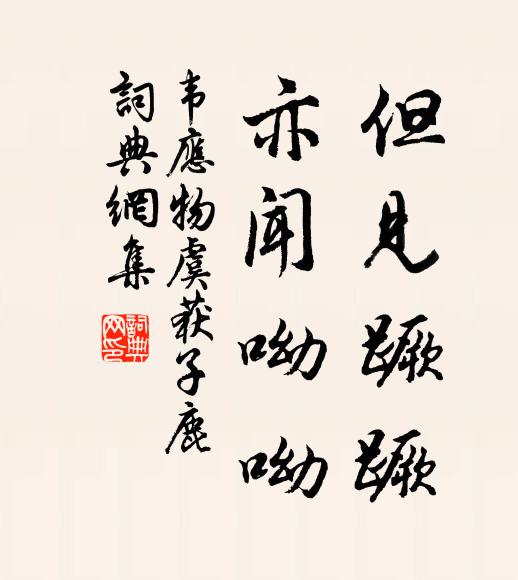 但见蹶蹶
亦闻呦呦
韦應物虞获子鹿
詞典網集
詞典
网印